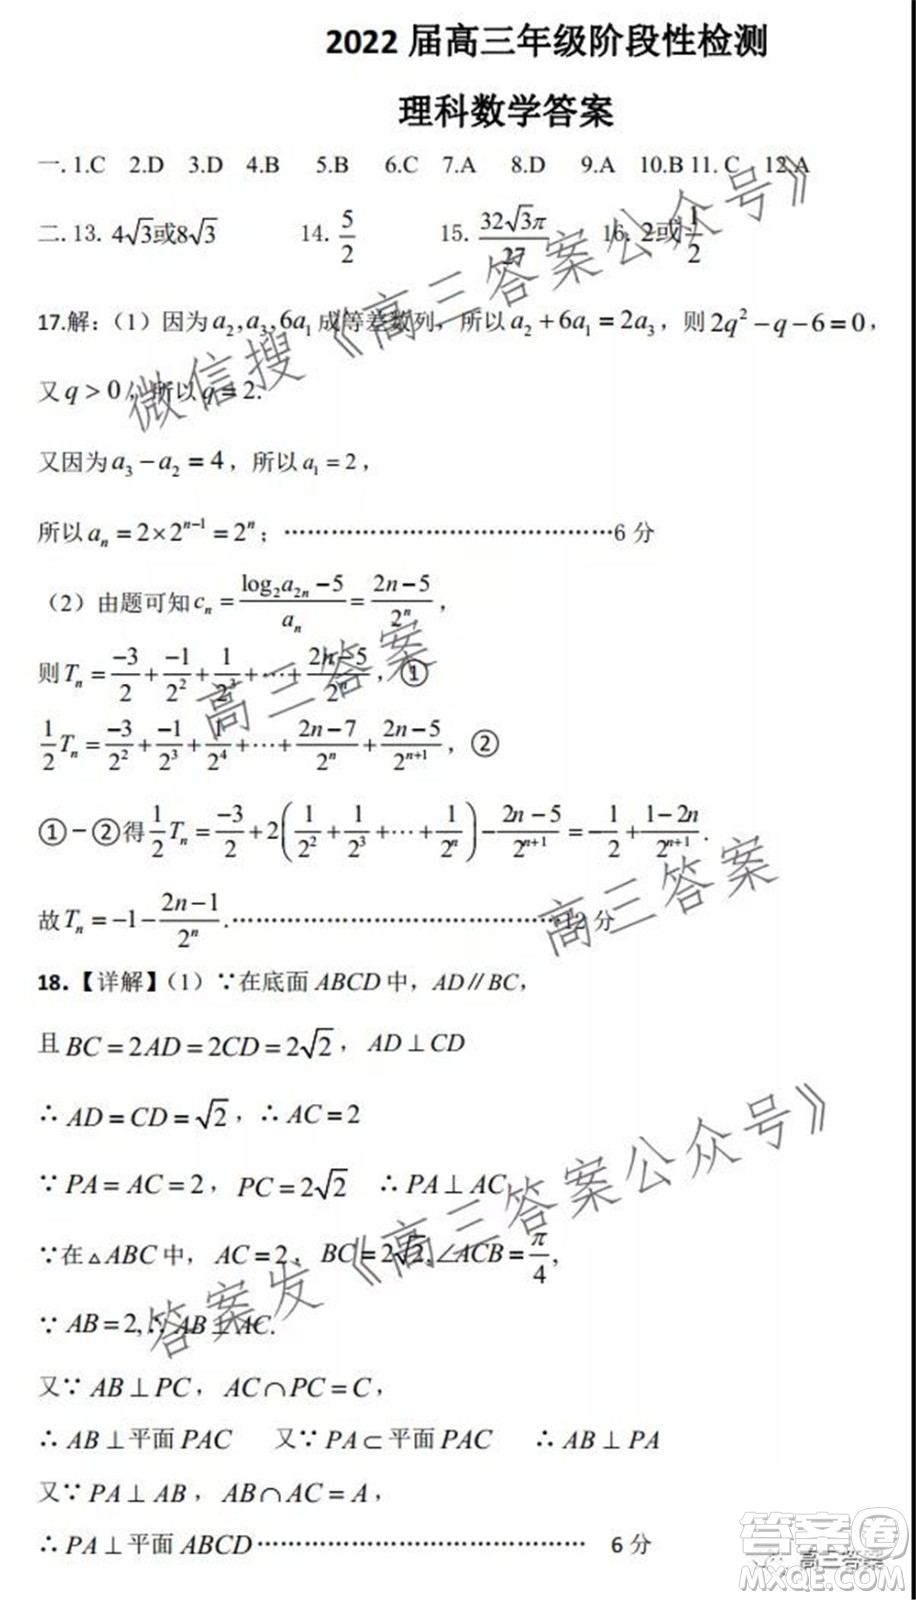 2022 届高三年级阶段性检测
理科数学答案
一.1.C 2.D 3.D 4.B 5.B 6.C 7.A 8.D 9.A 10.B 11.C 12.A
二.13. 4√3或8√3 14. 5/2 15. 32√3π/27 16. 2或1/2
17.解：（1）因为a₂,a₃,6a₁成等差数列，所以a₂+6a₁=2a₃，则2q²−q−6=0，
又q>0，所以q=2.
又因为a₃−a₂=4，所以a₁=2，
所以aₙ=2×2ⁿ⁻¹=2ⁿ；……………………………………6 分
（2）由题可知cₙ=(log₂a₂ₙ−5)/aₙ=(2n−5)/2ⁿ，
则Tₙ=−3/2+−1/2²+1/2³+⋯+(2n−5)/2ⁿ，①
1/2Tₙ=−3/2²+−1/2³+1/2⁴+⋯+(2n−7)/2ⁿ+(2n−5)/2ⁿ⁺¹，②
①−②得1/2Tₙ=−3/2+2(1/2²+1/2³+⋯+1/2ⁿ)−(2n−5)/2ⁿ⁺¹=−1/2+(1−2n)/2ⁿ⁺¹.
故Tₙ=−1−(2n−1)/2ⁿ.……………………………………12 分
18.【详解】（1）∵在底面ABCD中，AD∥BC，
且BC=2AD=2CD=2√2，AD⊥CD
∴AD=CD=√2，∴AC=2
∵PA=AC=2，PC=2√2 ∴PA⊥AC
∵在△ABC中，AC=2，BC=2√2,∠ACB=π/4,
∵AB=2,∴AB⊥AC.
又∵AB⊥PC，AC∩PC=C，
∴AB⊥平面PAC 又∵PA⊂平面PAC ∴AB⊥PA
又∵PA⊥AB，AB∩AC=A，
∴PA⊥平面ABCD…………………………………… 6 分
微信搜《高三答案公众号》
高三答案
高三答案
答案发《高三答案公众号》
答案圈
高三答案
MXQE.COM